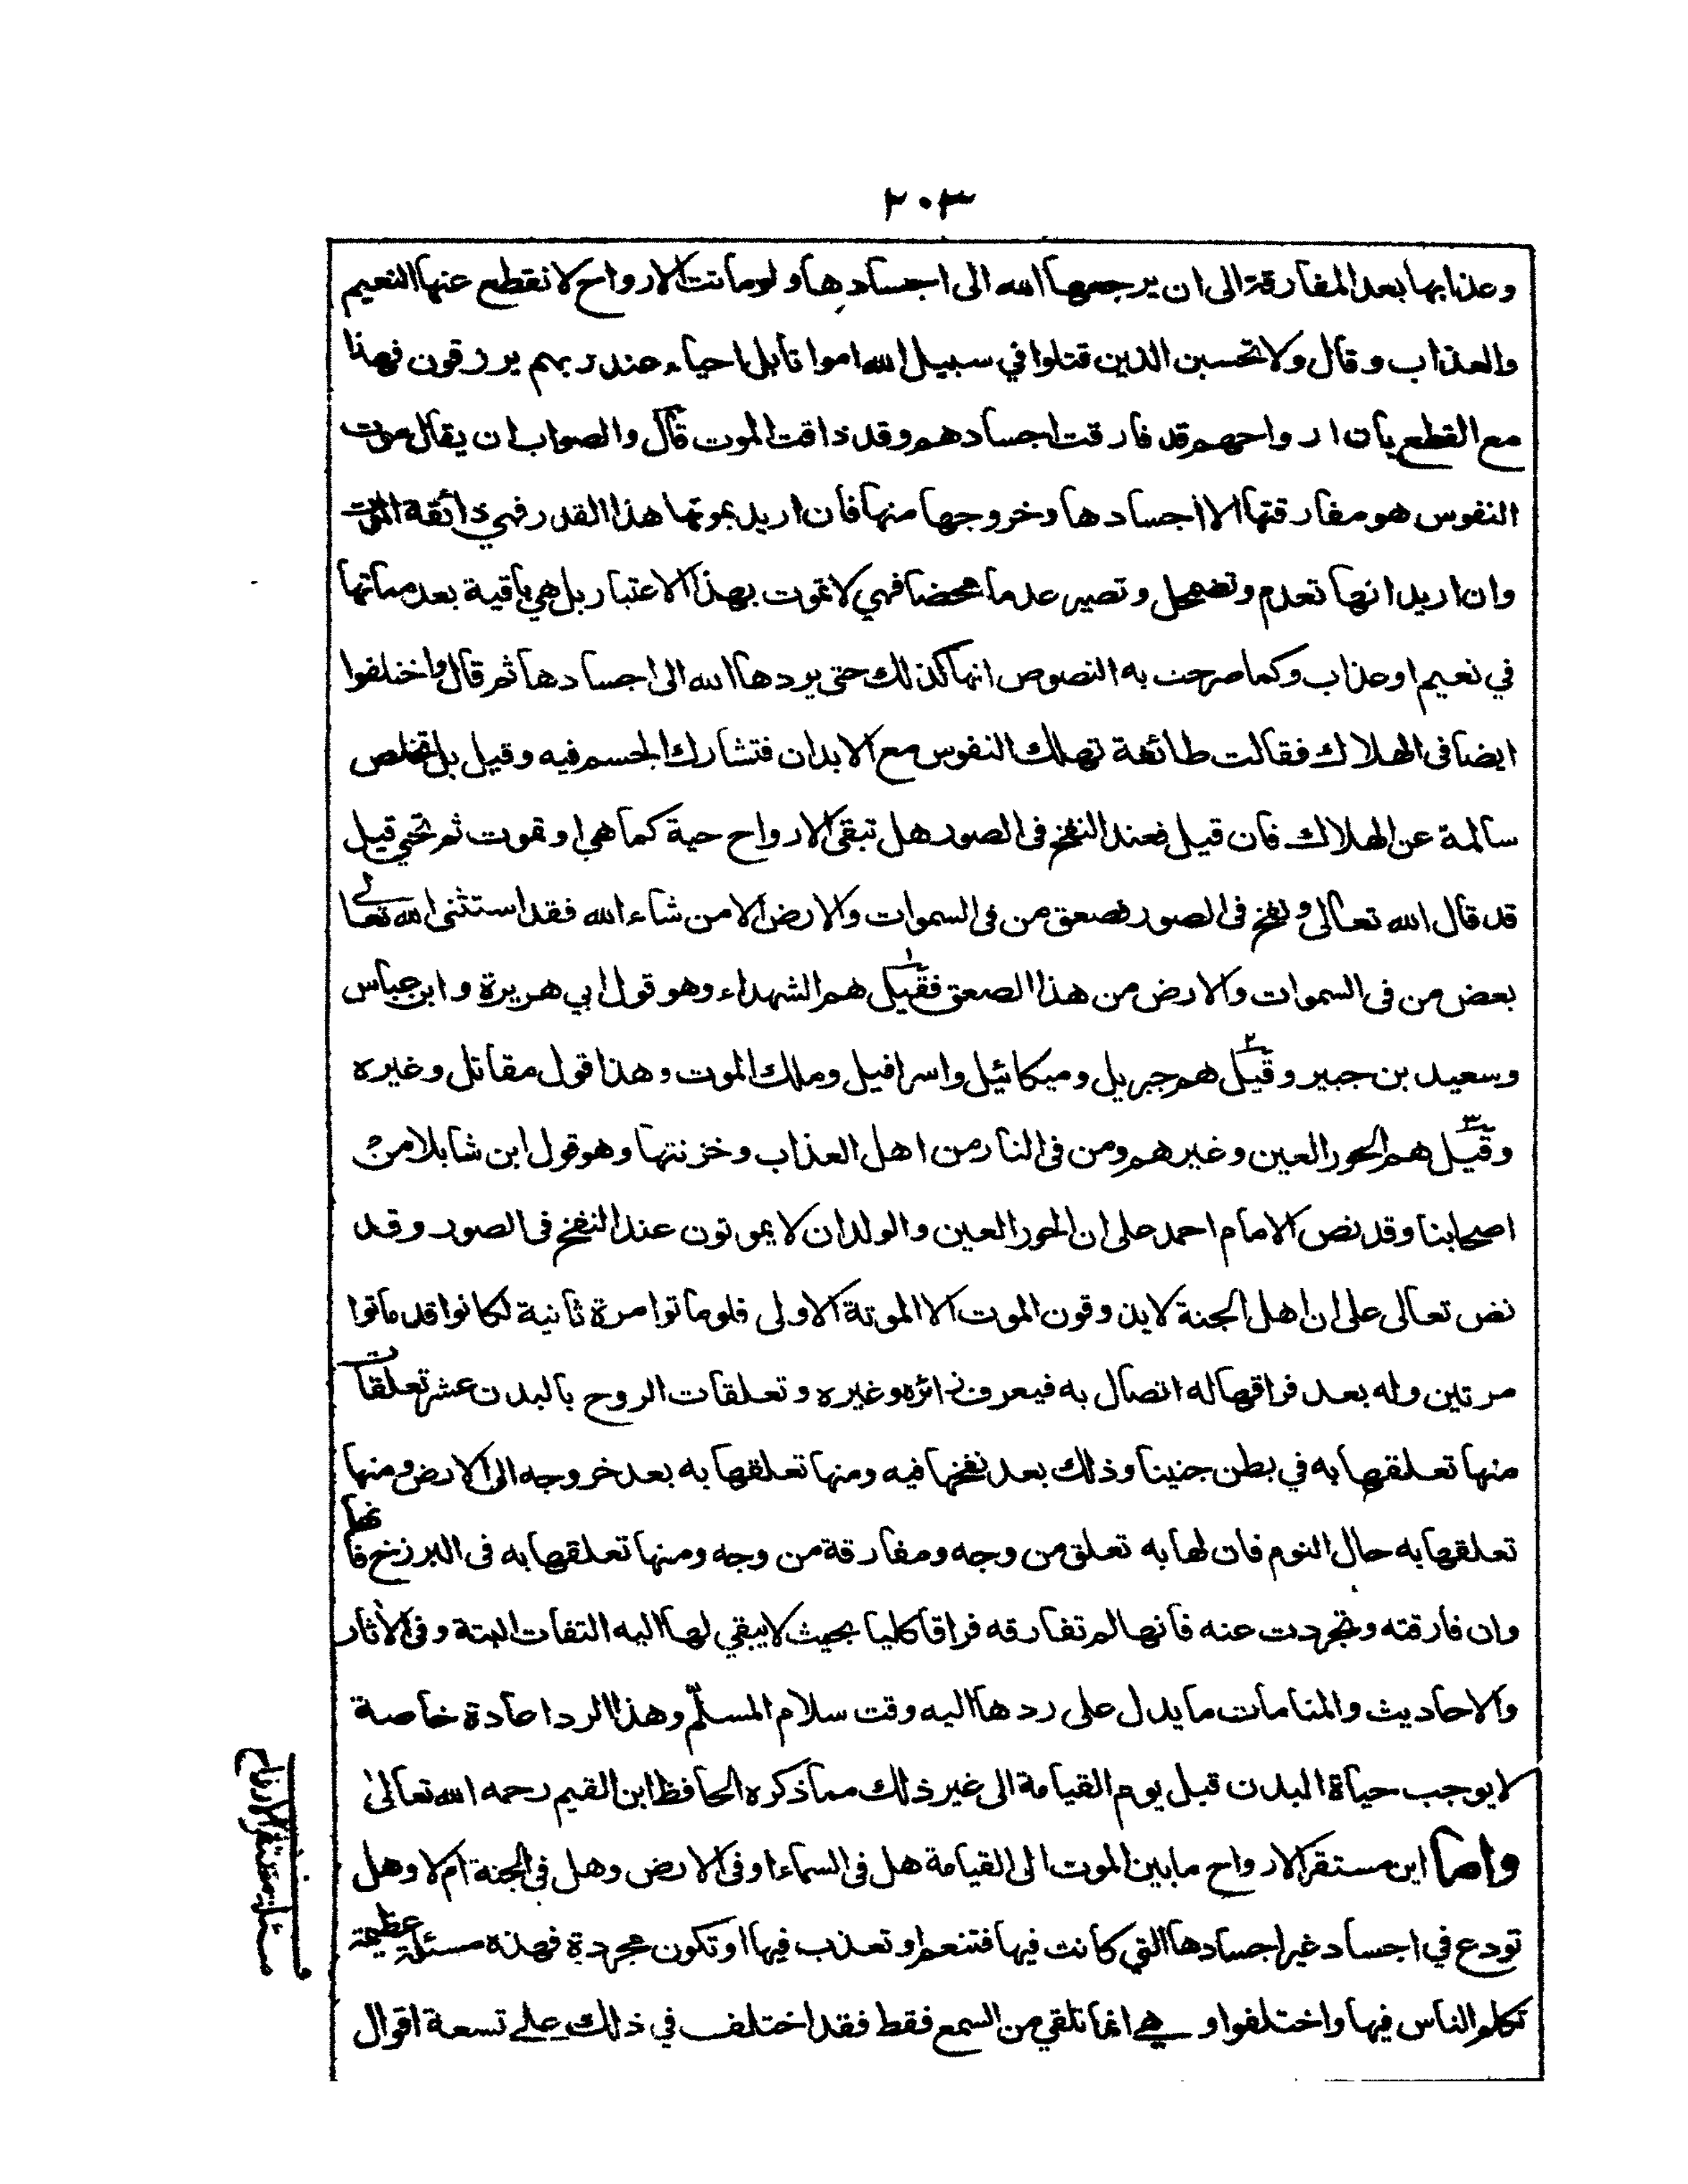 ٢٠٣
وعذابها بعد المفارقة الى ان يرجعها الله الى اجسادها ولو ماتت الارواح لانقطع عنها النعيم
والعذاب وقال ولا تحسبن الذين قتلوا في سبيل الله امواتا بل احياء عند ربهم يرزقون فهذا
مع القطع بان ارواحهم قد فارقت اجسادهم وقد ذاقت الموت قال والصواب ان يقال موت
النفوس هو مفارقتها لاجسادها وخروجها منها فان اريد بموتها هذا القدر فهي ذائقة الموت
وان اريد انها تعدم وتضمحل وتصير عدما محضا فهي لا تموت بهذا الاعتبار بل هي باقية بعد مماتها
في نعيم او عذاب وكما صرحت به النصوص انها كذلك حتى يردها الله الى اجسادها ثم قال واختلفوا
ايضا فى الهلاك فقالت طائفة تهلك النفوس مع الابدان فتشارك الجسم فيه وقيل بل تخلص
سالمة عن الهلاك فان قيل فعند النفخ فى الصور هل تبقى الارواح حية كما هي او تموت ثم تحي قيل
قد قال الله تعالى ونفخ فى الصور فصعق من فى السموات والارض الا من شاء الله فقد استثنى الله تعالى
بعض من فى السموات والارض من هذا الصعق فقيل ١ هم الشهداء وهو قول ابي هريرة وابن عباس
وسعيد بن جبير وقيل ٢ هم جبريل وميكائيل واسرافيل وملك الموت وهذا قول مقاتل وغيره
وقيل ٣ هم الحور العين وغيرهم ومن فى النار من اهل العذاب وخزنتها وهو قول ابن شابلا من
اصحابنا وقد نص الامام احمد على ان الحور العين والولدان لا يموتون عند النفخ فى الصور وقد
نص تعالى على ان اهل الجنة لا يذوقون الموت الا الموتة الاولى فلو ماتوا مرة ثانية لكانوا قد ماتوا
مرتين وله بعد فراقها له اتصال به فيعرف زائره وغيره وتعلقات الروح بالبدن عشر تعلقات
منها تعلقها به في بطن جنينا وذلك بعد نفخها فيه ومنها تعلقها به بعد خروجه الى الارض ومنها
تعلقها به حال النوم فان لها به تعلق من وجه ومفارقة من وجه ومنها تعلقها به فى البرزخ فانها
وان فارقته وتجردت عنه فانها لم تفارقه فراقا كليا بحيث لا يبقي لها اليه التفات البتة وفى الأثار
والاحاديث والمنامات ما يدل على ردها اليه وقت سلام المسلّم وهذا الرد اعادة خاصة
لا يوجب حياة البدن قبل يوم القيامة الى غير ذلك مما ذكره الحافظ ابن القيم رحمه الله تعالى
واما اين مستقر الارواح ما بين الموت الى القيامة هل فى السماء او فى الارض وهل فى الجنة ام لا وهل
تودع في اجساد غير اجسادها التي كانت فيها فتنعم او تعذب فيها او تكون مجردة فهذه مسئلة عظيمة
تكلم الناس فيها واختلفوا وهي انما تلقي من السمع فقط فقد اختلف في ذلك على تسعة اقوال
مسئلة مستقر الارواح